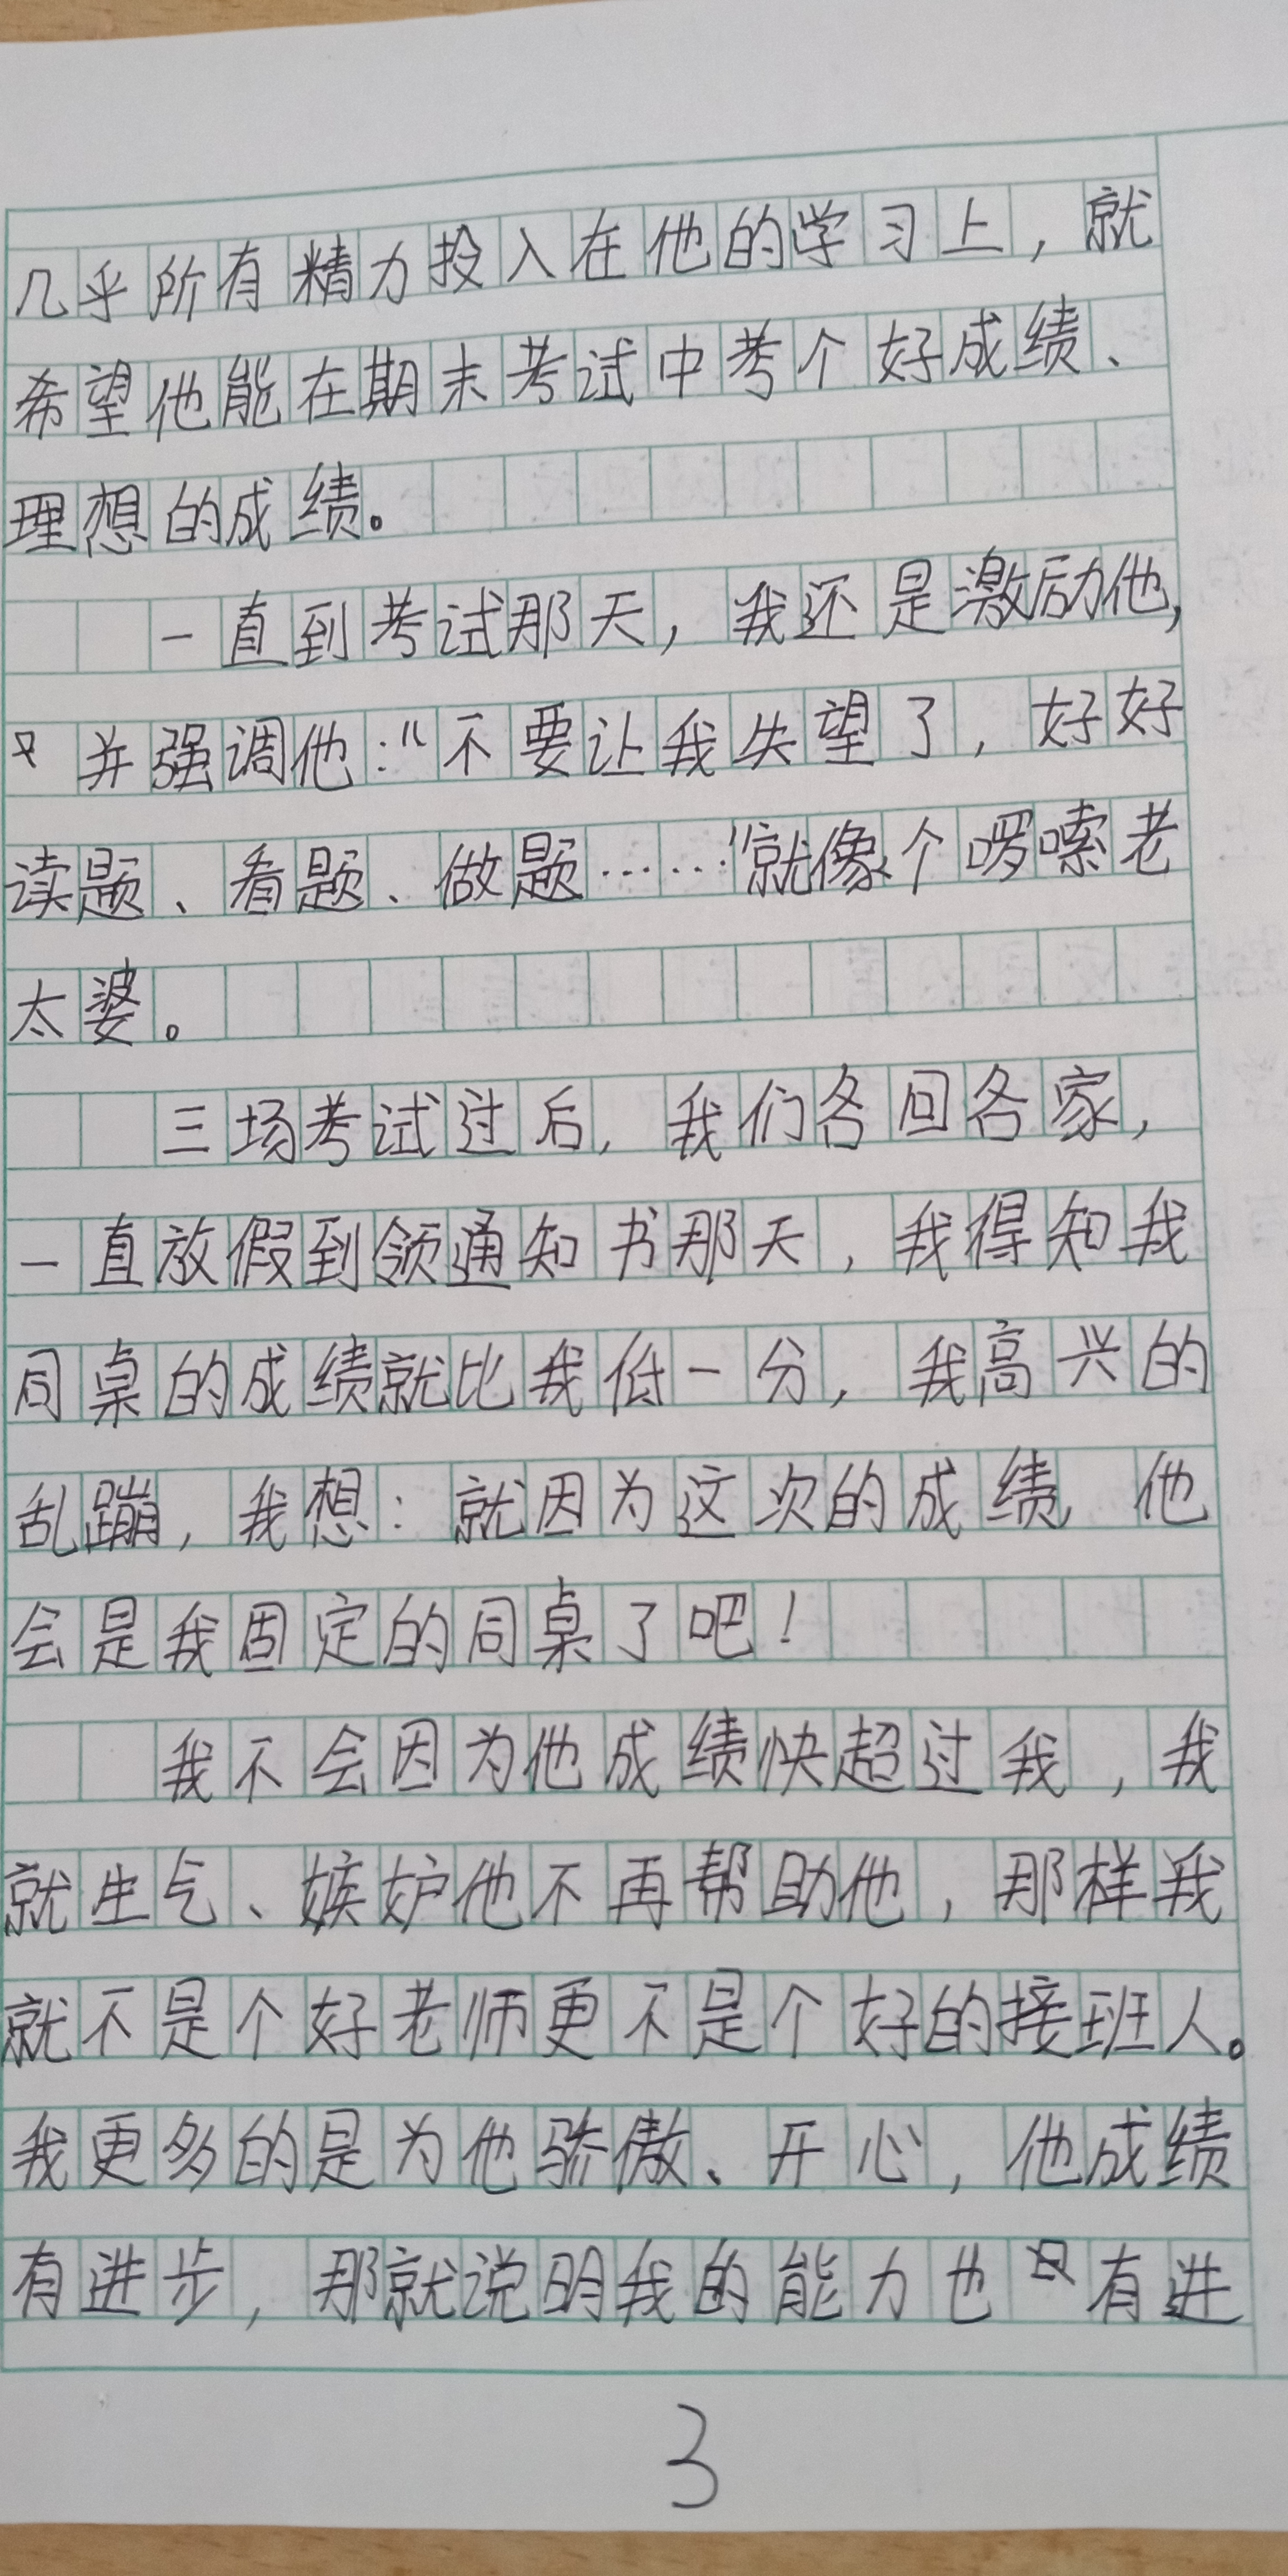 几乎所有精力投入在他的学习上，就
希望他能在期末考试中考个好成绩、
理想的成绩。
一直到考试那天，我还是激励他，
并强调他：“不要让我失望了，好好
读题、看题、做题……”就像个啰嗦老
太婆。
三场考试过后，我们各回各家，
一直放假到领通知书那天，我得知我
同桌的成绩就比我低一分，我高兴的
乱蹦，我想：就因为这次的成绩，他
会是我固定的同桌了吧！
我不会因为他成绩快超过我，我
就生气、嫉妒他不再帮助他，那样我
就不是个好老师更不是个好的接班人。
我更多的是为他骄傲、开心，他成绩
有进步，那就说明我的能力也有进
3